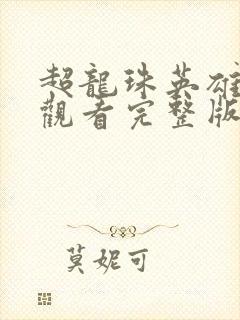 超龍珠英雄
觀看完整版
莫妮可